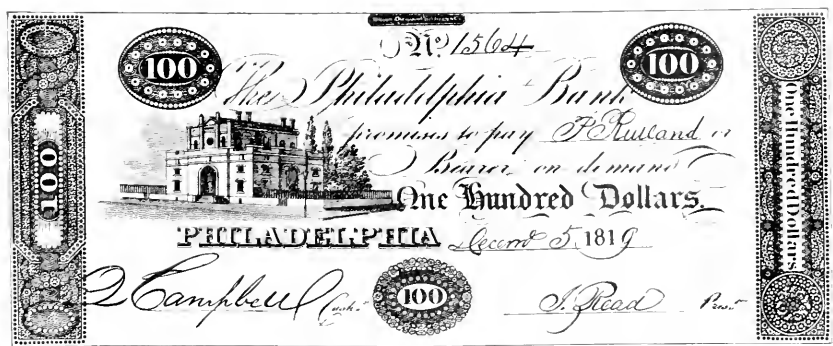 No. 1564
100
100
The Philadelphia Bank
promises to pay F Rutland or
Bearer on demand
One Hundred Dollars.
PHILADELPHIA Decem 5 1819
Q Campbell Cash.r
100
J. Read Prest
100
One Hundred Dollars